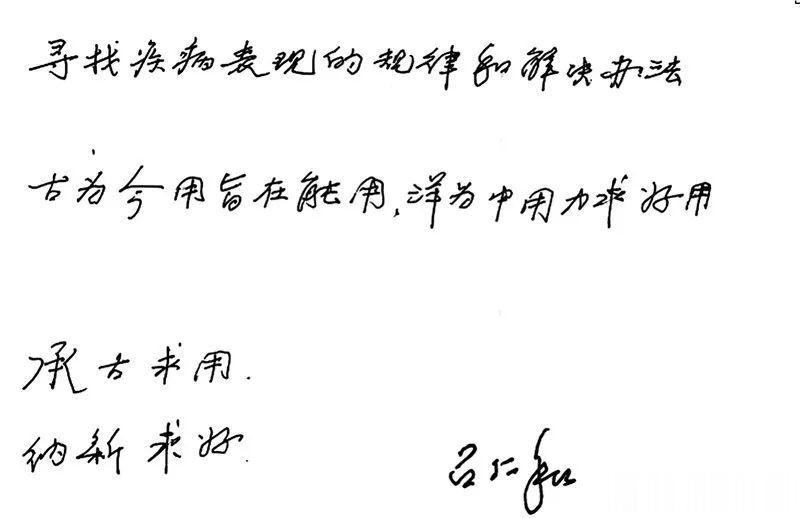 寻找疾病表现的规律和解决办法
古为今用旨在能用，洋为中用力求好用
承古求用.
纳新求好.
吕仁和